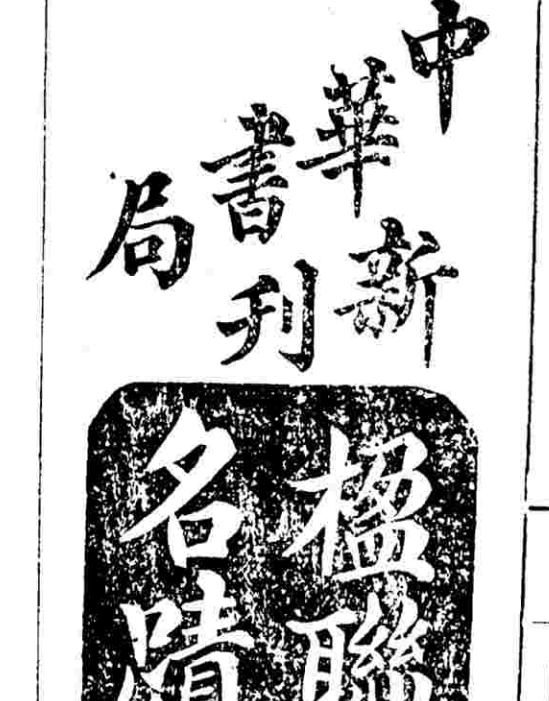 中華書局
新刊
楹聯
名蹟